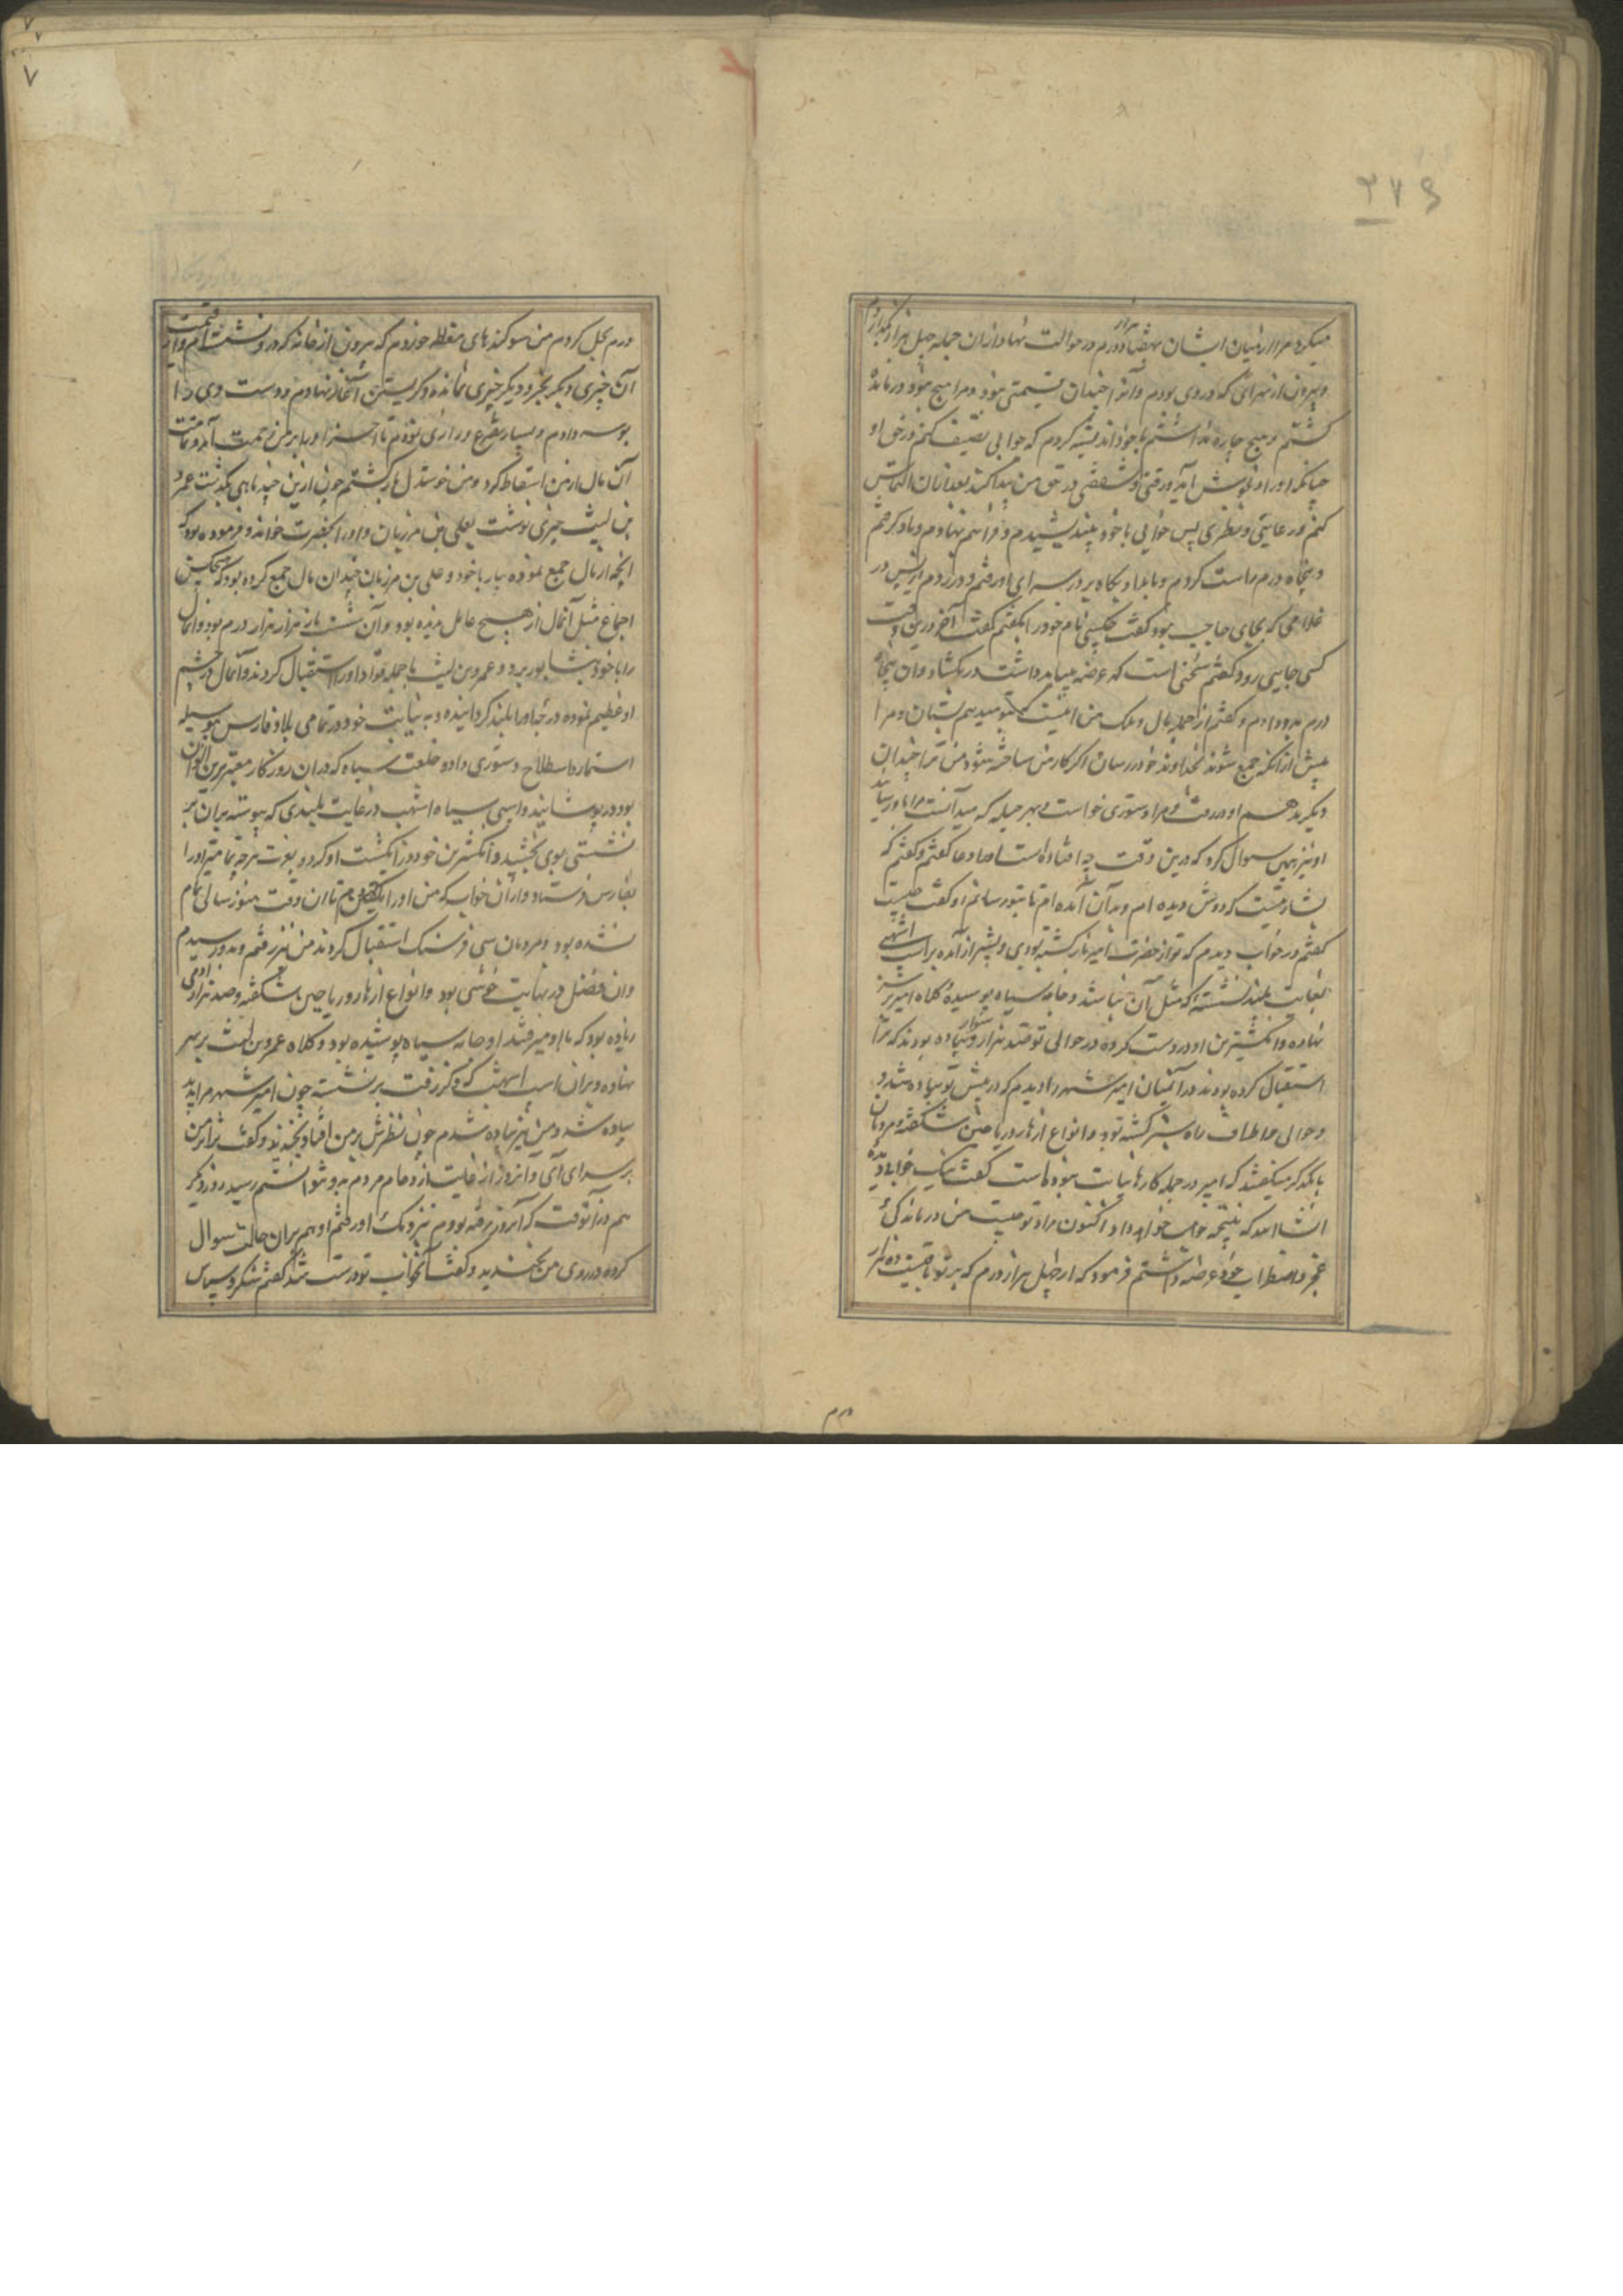 ۳۷۶
میکرد مرا از میان ایشان هفتاد هزار درم در حوالت نهاد و ازان جمله چهل هزار بگذاردم
و بیرون از سرائی که در وی بودم و آنرا چندان قیمتی نبود و مرا هیچ نبود درمانده
گشتم و هیچ چاره نداشتم با خود اندیشه کردم که خوابی تصنیف کنم در حق او
چنانکه او را خوش آید و رقتی و شفقتی در حق من پیدا کند بعد ازان التماس
کنم در عایتی و نظری پس خوابی با خود بیندیشیدم و فراهم نهادم و یاد گرفتم
و پنجاه درم راست کردم و بامداد پگاه بر در سرای او رفتم و در زدم از پس در
غلامی که بجای حاجب بود گفت کیستی نام خود را بگفتم گفت آخر درین وقت
کسی جایی رود گفتم سخنی است که عرضه میباید داشت در بگشاد و آن پنجاه
درم بدو دادم و گفتم از جمله مال و ملک من اینست که تو میدهم بستان و مرا
پیش از آنکه جمع شوند بخداوند خود رسان اگر کار من ساخته شود من ترا چندان
دیگر بدهم او در رفت و مرا دستوری خواست بهر حیله که میدانست مرا باو رسانید
او نیز همین سوال کرد که درین وقت چه افتاده است او را دعا گفتم و گفتم که
بشارتیست که دوش دیده ام و بدان آمده ام تا بتو رسانم او گفت چیست
گفتم در خواب دیدم که تو از حضرت امیر بازگشته بودی و بشیراز آمده بر اسپ اشهبی
بغایت بلند نشسته که مثل آن نباشد و جامه سیاه پوشیده و کلاه امیر بر سر
نهاده و انگشترین او در دست کرده و در حوالی تو صد هزار سوار و پیاده بودند که ترا
استقبال کرده بودند و در آنمیان امیر شهر را دیدم که در پیش تو پیاده شد و
و حوالی و اطراف راه سبز گشته بود و انواع ازهار و ریاحین شکفته و مردمان
با یکدیگر میگفتند که امیر در جمله کارها نیابت بدو داست گفت نیک خوابی دیده
انشاالله که نتیجه خواهد داد اکنون مراد تو چیست من درماندگی
عجز و اضطراب خود عرضه داشتم فرمود که از چهل هزار درم که بر تو باقیست ده هزار
درم
درم بحل کردم من سوگندهای مغلظه خوردم که بیرون از خانه که در و نشسته ام و از قیمت
آن چیزی دیگر بخرد دیگر چیزی نمانده و گریستن آغاز نهادم و دست وی را
بوسه دادم و بسیار تضرع و زاری نمودم تا آخر او را بر من رحمت آمد و تمامت
آن مال از من اسقاط کرد و من خوشدل باز گشتم چون ازین چند ماهی بگذشت عمرو
بن لیث چیزی نوشت بعلی بن مرزبان و او را بحضرت خواند و فرموده بود که
آنچه از مال جمع نموده بیار با خود و علی بن مرزبان چندان مال جمع کرده بود که هیچکس
اجتماع مثل آنمال از هیچ عامل ندیده بود و آن شست بار هزار هزار درم بود و آنمال
را با خود بنشابور برد و عمرو بن لیث با جمله قواد او را استقبال کردند و آنمال در چشم
او عظیم نموده و رتبت او را بلند گردانیده و به نیابت خود در تمامی بلاد فارس
دستوری داد و خلعت سیاه که در ان روزگار معتبرترین الوان
بود در پوشانید و اسپی سیاه اشهب در غایت بلندی که پیوسته بر ان بر
نشستی بوی بخشید و انگشترین خود در انگشت او کرد و بعزت هرچه تمامتر او را
بفارس فرستاد و از آن خواب که من او را گفته بودم تا ان وقت هنوز سالی تمام
نشده بود و مردمان سی فرسنگ استقبال کردند من نیز رفتم و بدو رسیدم
و ان فصل در نهایت خوشی بود و انواع ازهار و ریاحین شکفته و صد هزار آدمی
زیاده بود که با او میرفتند او جامه سیاه پوشیده بود و کلاه عمرو بن لیث بر سر
نهاده و بر ان اسپ اشهب که ذکر رفت بر نشسته چون امیر شهر مرا بدید
پیاده شد و من نیز پیاده شدم چون نظرش بر من افتاد بخندید و گفت فردا
بر سرای آی و آنروز از غایت ازدحام مردم بدو نتوانستم رسید روز دیگر
هم در آنوقت که آنروز رفته بودم بنزدیک او رفتم او هم بران حالت سوال
کرده در روی من بخندید و گفت آنخواب تو درست شد گفتم شکر و سپاس